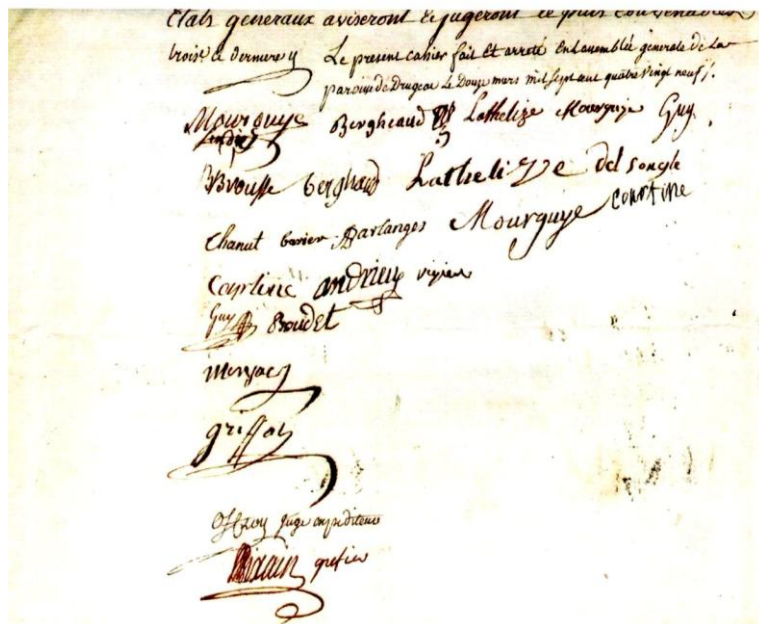 Etats generaux aviseront & jugeront le plus convenable
Le present cahier fait et arreté en lassemblée generale de la
paroisse de Drugeac le Douze mars mil sept cent quatre vingt neuf.
Mourguye Bergheaud Lathelize Mourguye Guy
Brousse berghaud Lathelize delsongle
Chanut barier Darlanges Mourguye courtine
Courtine andrieu vigier
Guy Boudet
meryac
griffol
juge expediteur
Mixain grefier